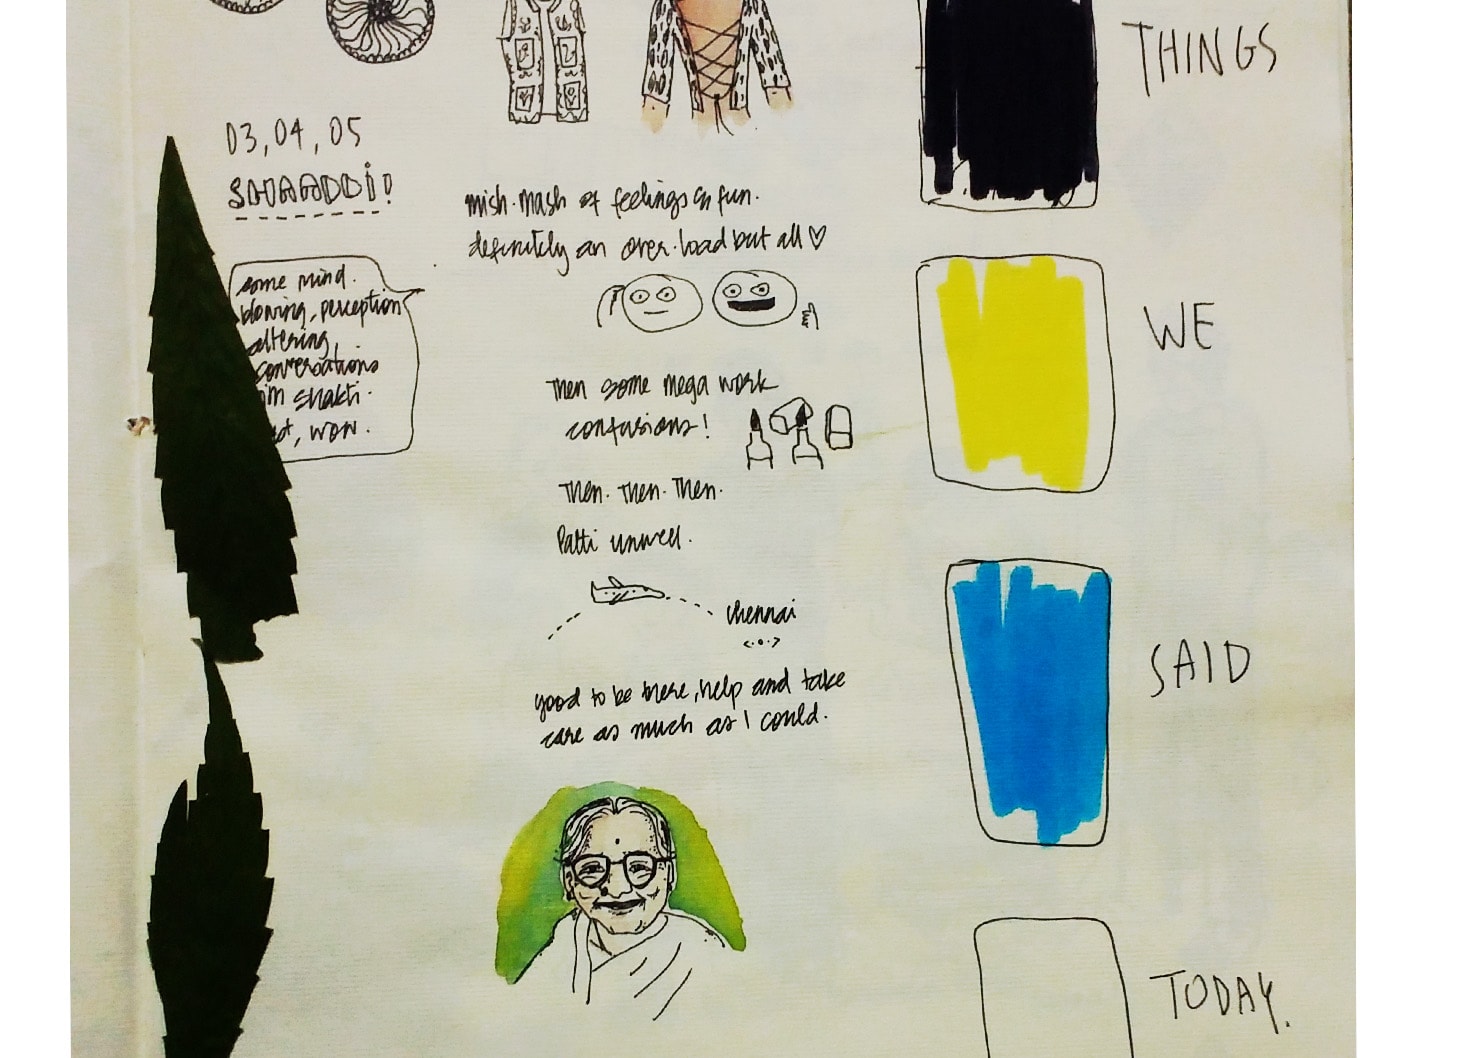 03, 04, 05
SHAADDI!
some mind.
blowing, perception
altering,
conversations
im shakti.
wow.
mish-mash of feelings n fun.
definitely an over-load but all ♡
Then some mega work
confusions!
Then. Then. Then.
Patti unwell.
chennai
good to be there, help and take
care as much as I could.
THINGS
WE
SAID
TODAY.